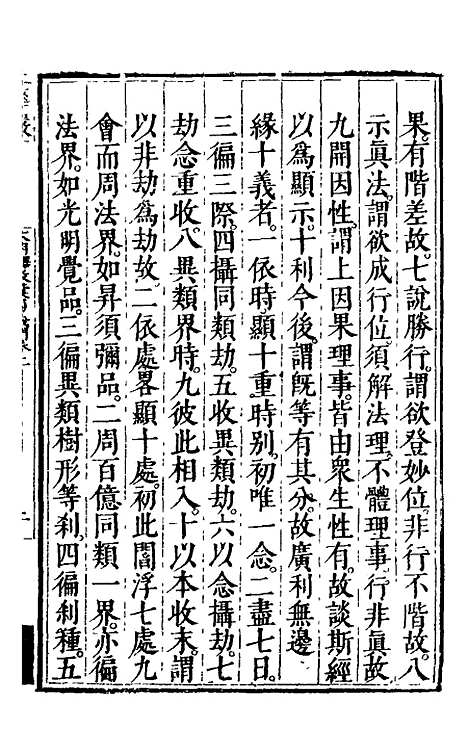 果。有階差故。七說勝行。謂欲登妙位。非行不階故。八
示眞法。謂欲成行位。須解法理。不體理事。行非眞故。
九開因性。謂上因果理事。皆由衆生性有。故談斯經
以爲顯示。十利今後。謂旣等有其分。故廣利無邊
緣十義者。一依時顯十重。時別。初唯一念。二盡七日。
三徧三際。四攝同類劫。五收異類劫。六以念攝劫。七
劫念重收。八異類界時。九彼此相入。十以本收末。謂
以非劫爲劫故。二依處畧顯十處。初此閻浮七處九
會而周法界。如昇須彌品。二周百億同類一界。亦徧
法界。如光明覺品。三徧異類樹形等刹。四徧刹種。五